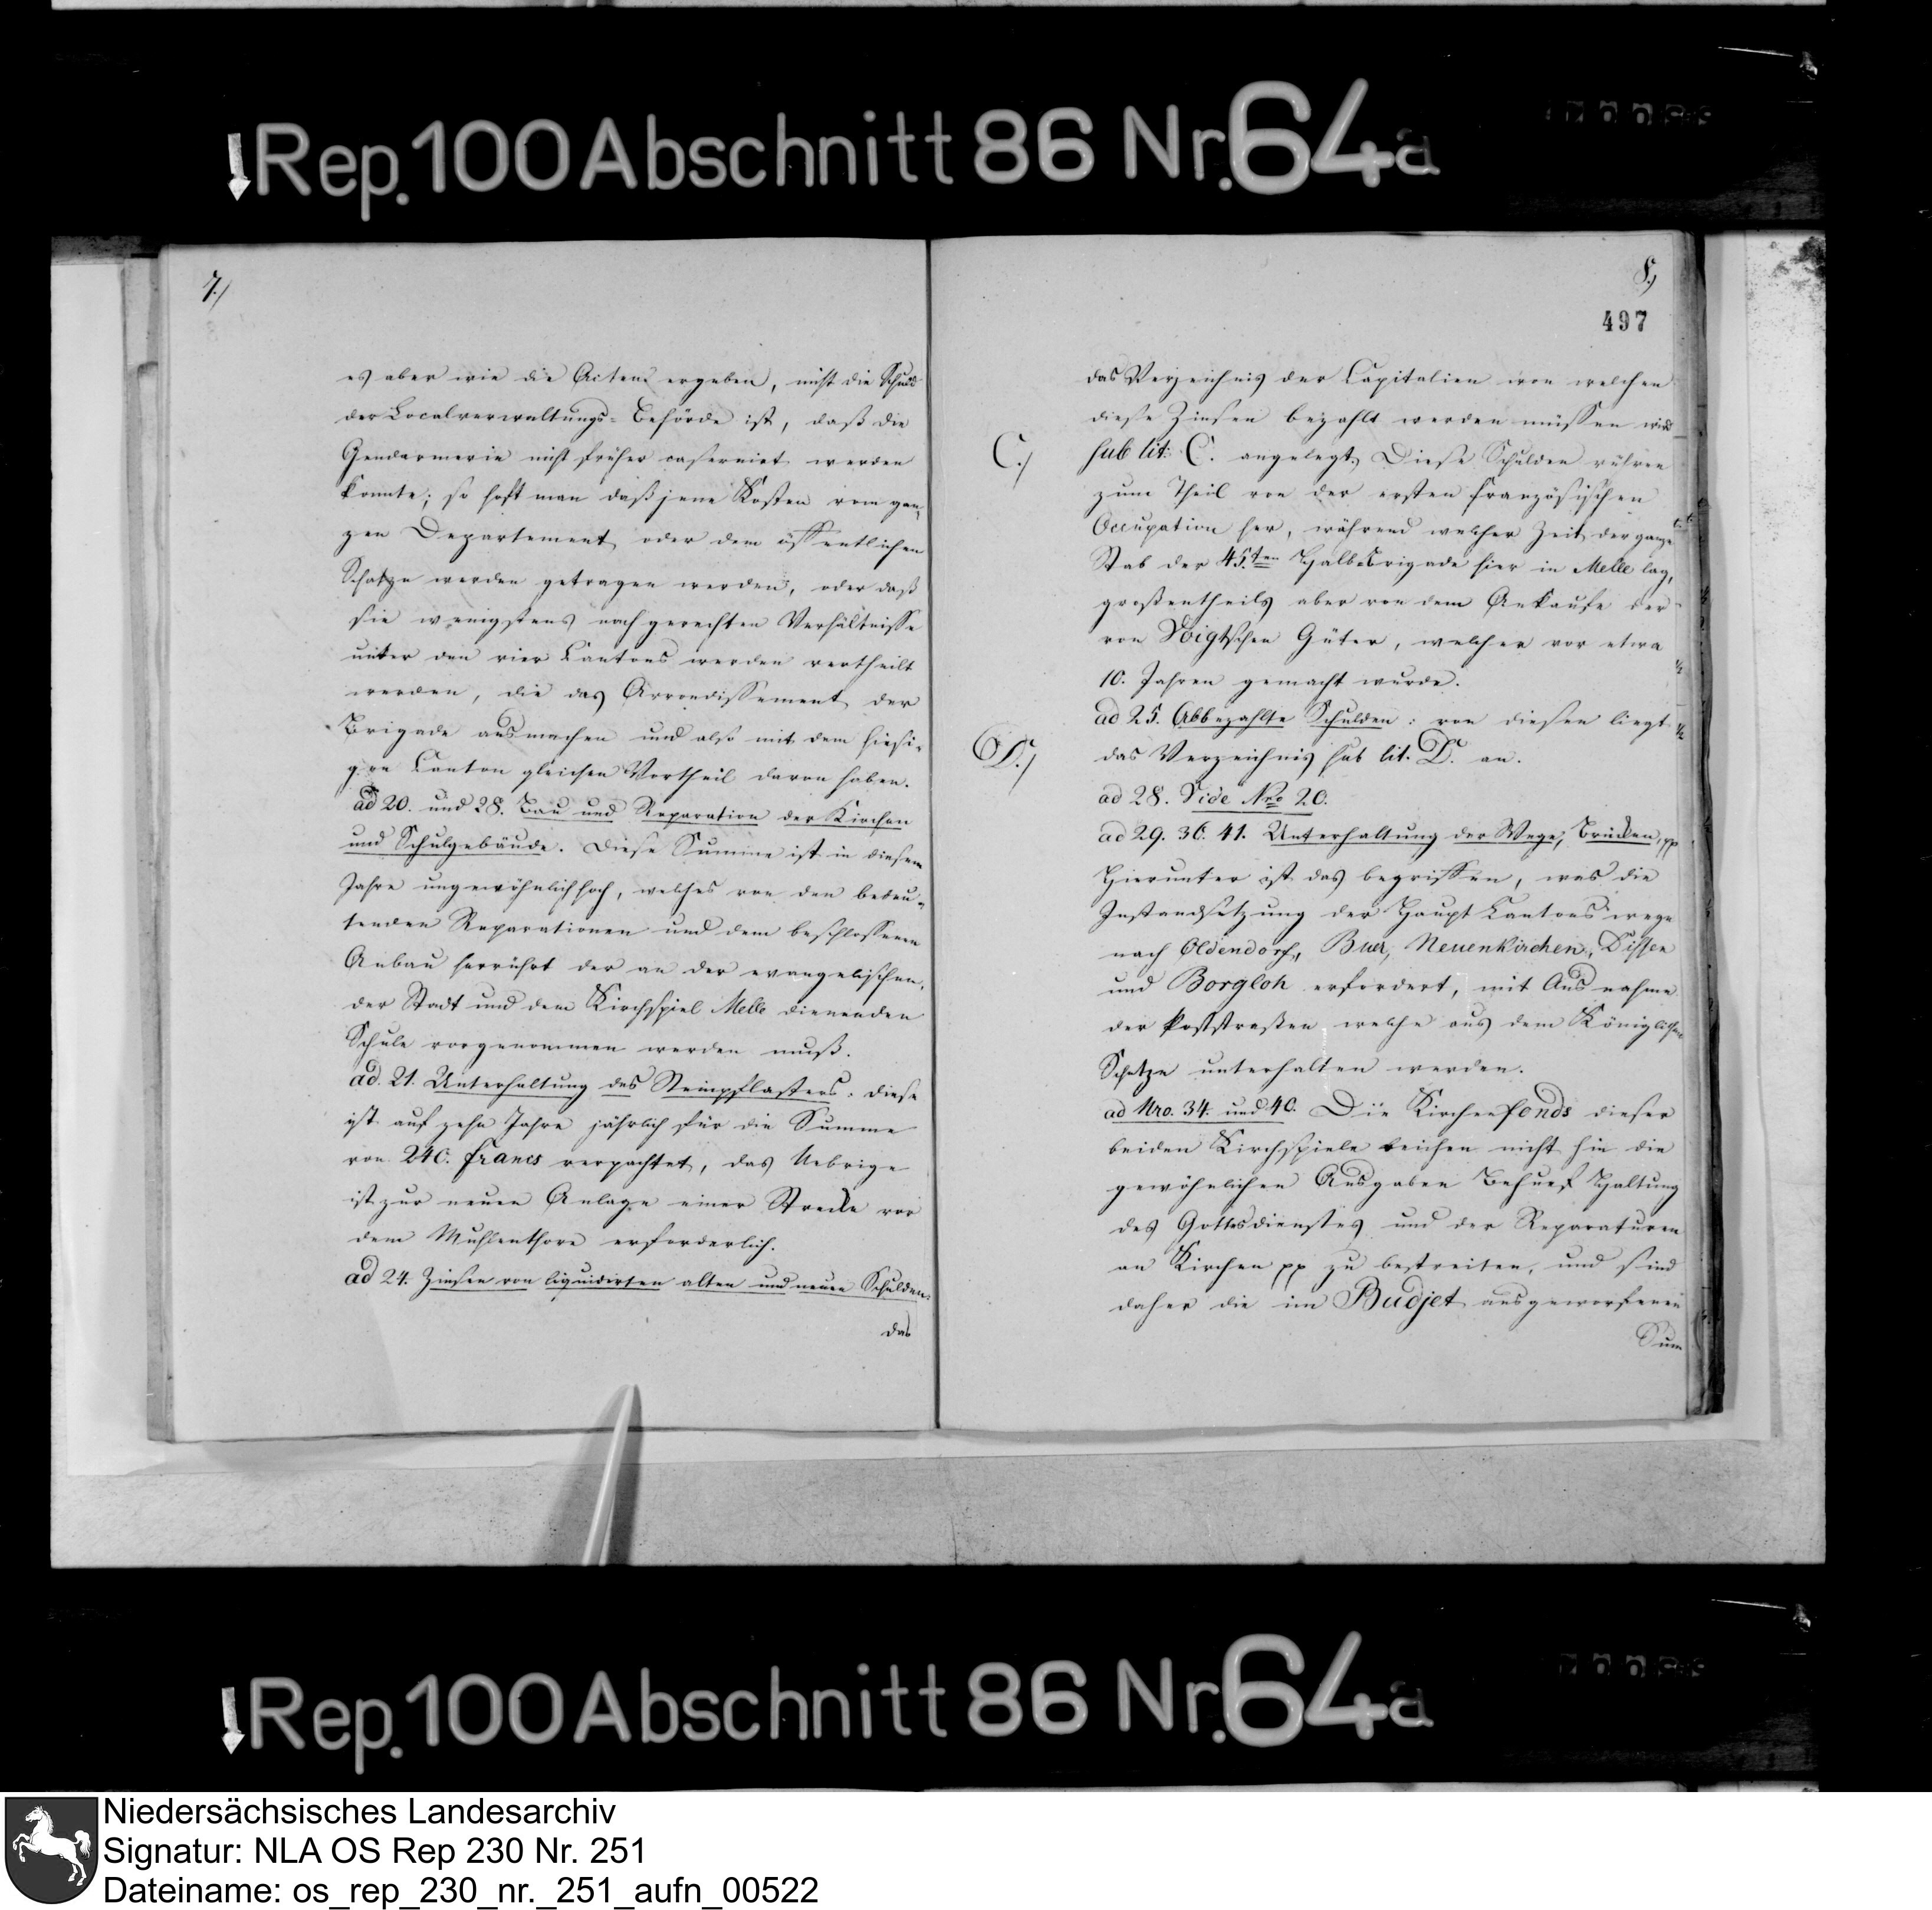 Rep. 100 Abschnitt 86 Nr. 64a
7.)
es aber wie die Acten ergeben, nicht die Schuld
der Localverwaltungs-Behörde ist, daß die
Gendarmerie nicht früher casernirt werden
konnte; so hoft man daß jene Kosten vom gan-
zen Departement oder dem öffentlichen
Schatze werden getragen werden, oder daß
sie wenigstens nach gerechten Verhältnisse
unter den vier Cantons werden vertheilt
werden, die das Arrondissement der
Brigade ausmachen und also mit dem hiesi-
gen Canton gleichen Vortheil davon haben.
ad 20. und 28. Bau und Reparation der Kirchen
und Schulgebäude. Diese Summe ist in diesem
Jahre ungewöhnlich hoch, welches von den bedeu-
tenden Reparationen und dem beschlossenen
Anbau herrührt der an der evangelischen,
der Stadt und dem Kirchspiel Melle dienenden
Schule vorgenommen werden muß.
ad. 21. Unterhaltung des Steinpflasters. diese
ist auf zehn Jahre jährlich für die Summe
von 240. francs verpachtet, das Uebrige
ist zur neuen Anlage einer Strecke vor
dem Muhlenthore erforderlich.
ad 24. Zinsen von liquidirten alten und neuen Schulden.
das
8.)
497
das Verzeichnis der Capitalien von welchen
diese Zinsen bezahlt werden müssen wird
C.) sub lit: C. angelegt. Diese Schulden rühren
zum Theil von der ersten französischen
Occupation her, während welcher Zeit der ganze
Stab der 45.ten Halb-Brigade hier in Melle lag,
großentheils aber von dem Ankaufe der
von Voigtschen Güter, welcher vor etwa
10. Jahren gemacht wurde.
ad 25. Abbezahlte Schulden: von diesen liegt
D.) das Verzeichnis sub lit. D. an.
ad 28. Vide Nro 20.
ad 29. 36. 41. Unterhaltung der Wege, Brücken, pp
Hierunter ist das begriffen, was die
Instandsetzung der Haupt Cantons wege
nach Oldendorf, Buer, Neuenkirchen, Dissen
und Borgloh erfordert, mit Ausnahme
der Poststraßen welche aus dem Königlichen
Schatze unterhalten werden.
ad Nro. 34. und 40. Die Kirchenfonds dieser
beiden Kirchspiele reichen nicht hin die
gewöhnlichen Ausgaben Behuef Haltung
des Gottesdienstes und der Reparaturen
an Kirchen pp zu bestreiten, und sind
daher die im Budjet ausgeworfenen
Sum
Rep. 100 Abschnitt 86 Nr. 64a
Niedersächsisches Landesarchiv
Signatur: NLA OS Rep 230 Nr. 251
Dateiname: os_rep_230_nr._251_aufn_00522